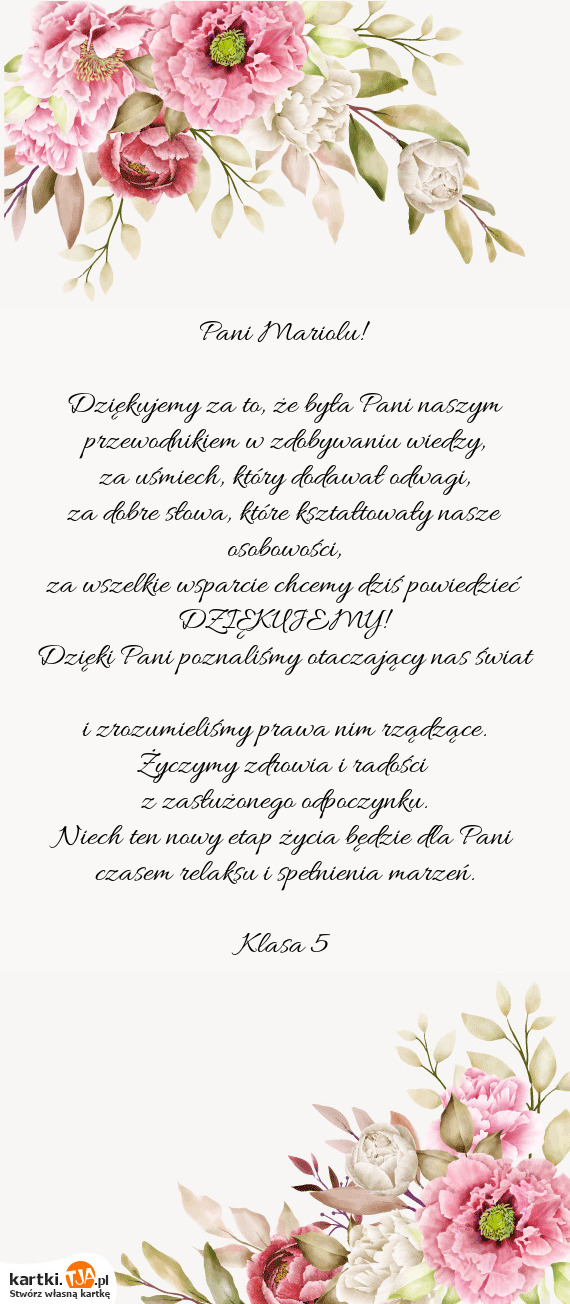 Pani Mariolu!
Dziękujemy za to, że była Pani naszym
przewodnikiem w zdobywaniu wiedzy,
za uśmiech, który dodawał odwagi,
za dobre słowa, które kształtowały nasze
osobowości,
za wszelkie wsparcie chcemy dziś powiedzieć
DZIĘKUJEMY!
Dzięki Pani poznaliśmy otaczający nas świat
i zrozumieliśmy prawa nim rządzące.
Życzymy zdrowia i radości
z zasłużonego odpoczynku.
Niech ten nowy etap życia będzie dla Pani
czasem relaksu i spełnienia marzeń.
Klasa 5
kartki.TJA.pl
Stwórz własną kartkę